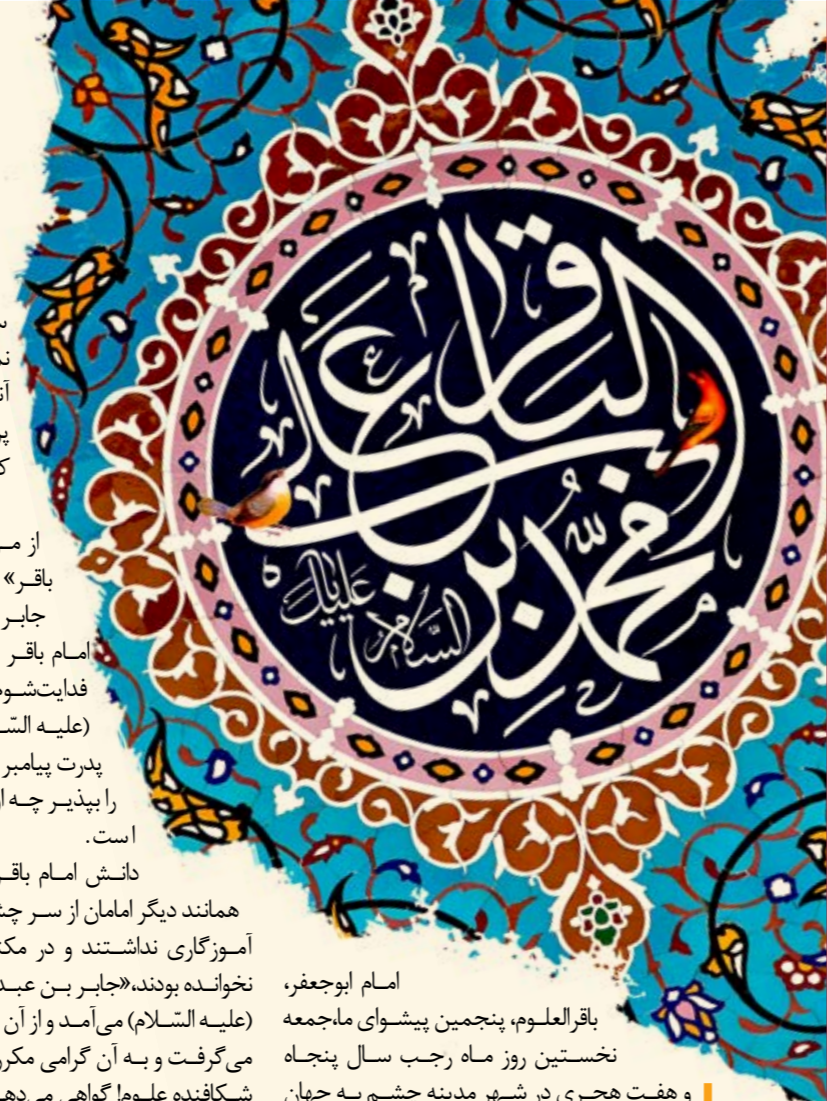 محمد بن علی الباقر
علیک السلام
امام ابوجعفر،
باقرالعلوم، پنجمین پیشوای ما،جمعه
نخستین روز ماه رجب سال پنجاه
و هفت هجری در شهر مدینه چشم به جهان
از
باقر»
جابر
امام باقر
فدایت‌شوم
(علیه
پدرت پیامبر
را بپذیر چه
است.
دانش امام
همانند دیگر امامان از سر
آموزگاری نداشتند و در
نخوانده بودند،«جابر بن
(علیه السّلام) می‌آمد و از آن
می‌گرفت و به آن گرامی
شکافنده علوم! گواهی